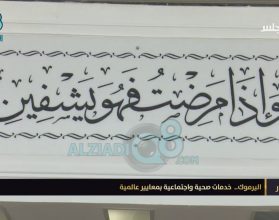 جلس
وإذا مرضت فهو يشفين
ALZIADIQ8
.COM
اليرموك.. خدمات صحية واجتماعية بمعايير عالمية